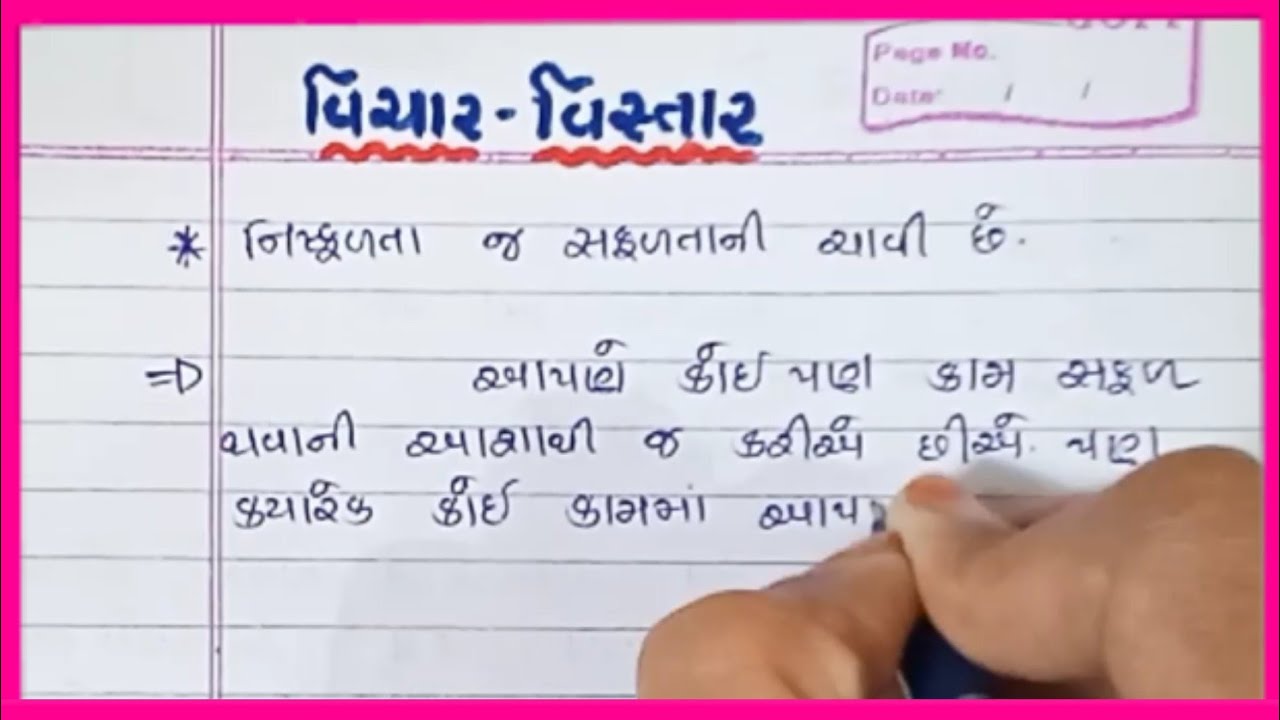 Page No.
Date: / /
વિચાર - વિસ્તાર
* નિષ્ફળતા જ સફળતાની ચાવી છે.
⇒ આપણે કોઈ પણ કામ સફળ
થવાની આશાથી જ કરીએ છીએ. પણ
ક્યારેક કોઈ કામમાં આપ